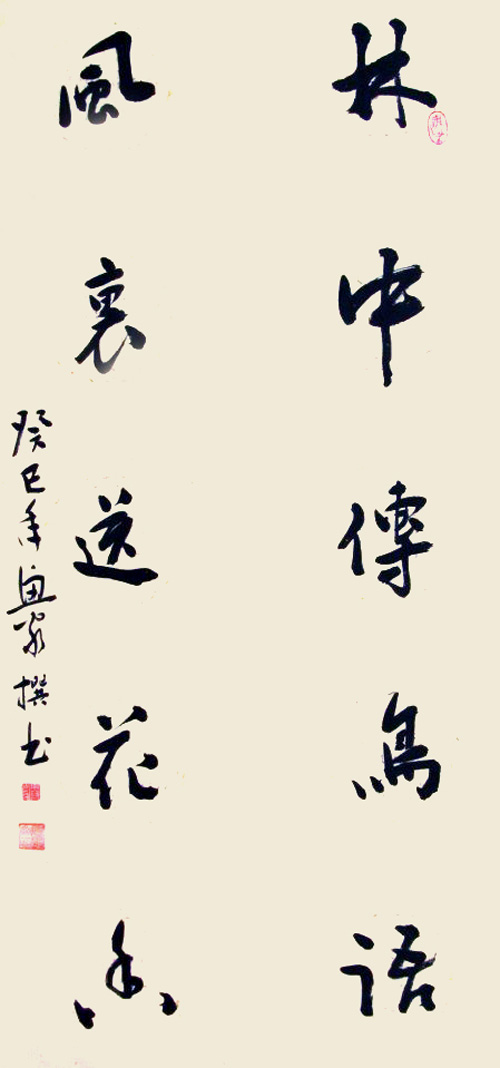 林中傳鳥語
風裏送花香
癸巳年
撰书